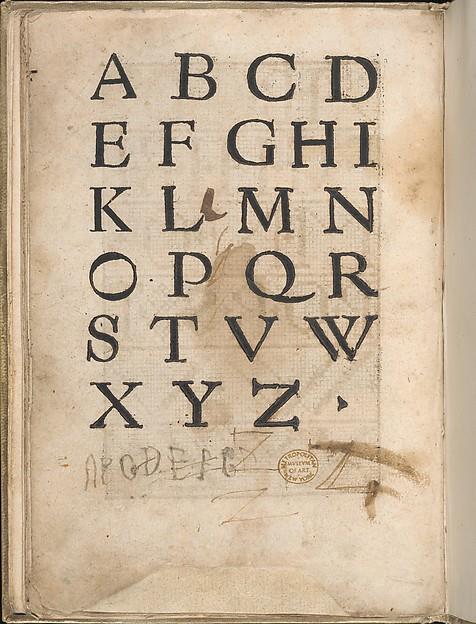 A B C D
E F G H I
K L M N
O P Q R
S T V W
X Y Z
A B C D E F G Z
Z
Z
METROPOLITAN
MUSEUM
OF ART
NEW YORK